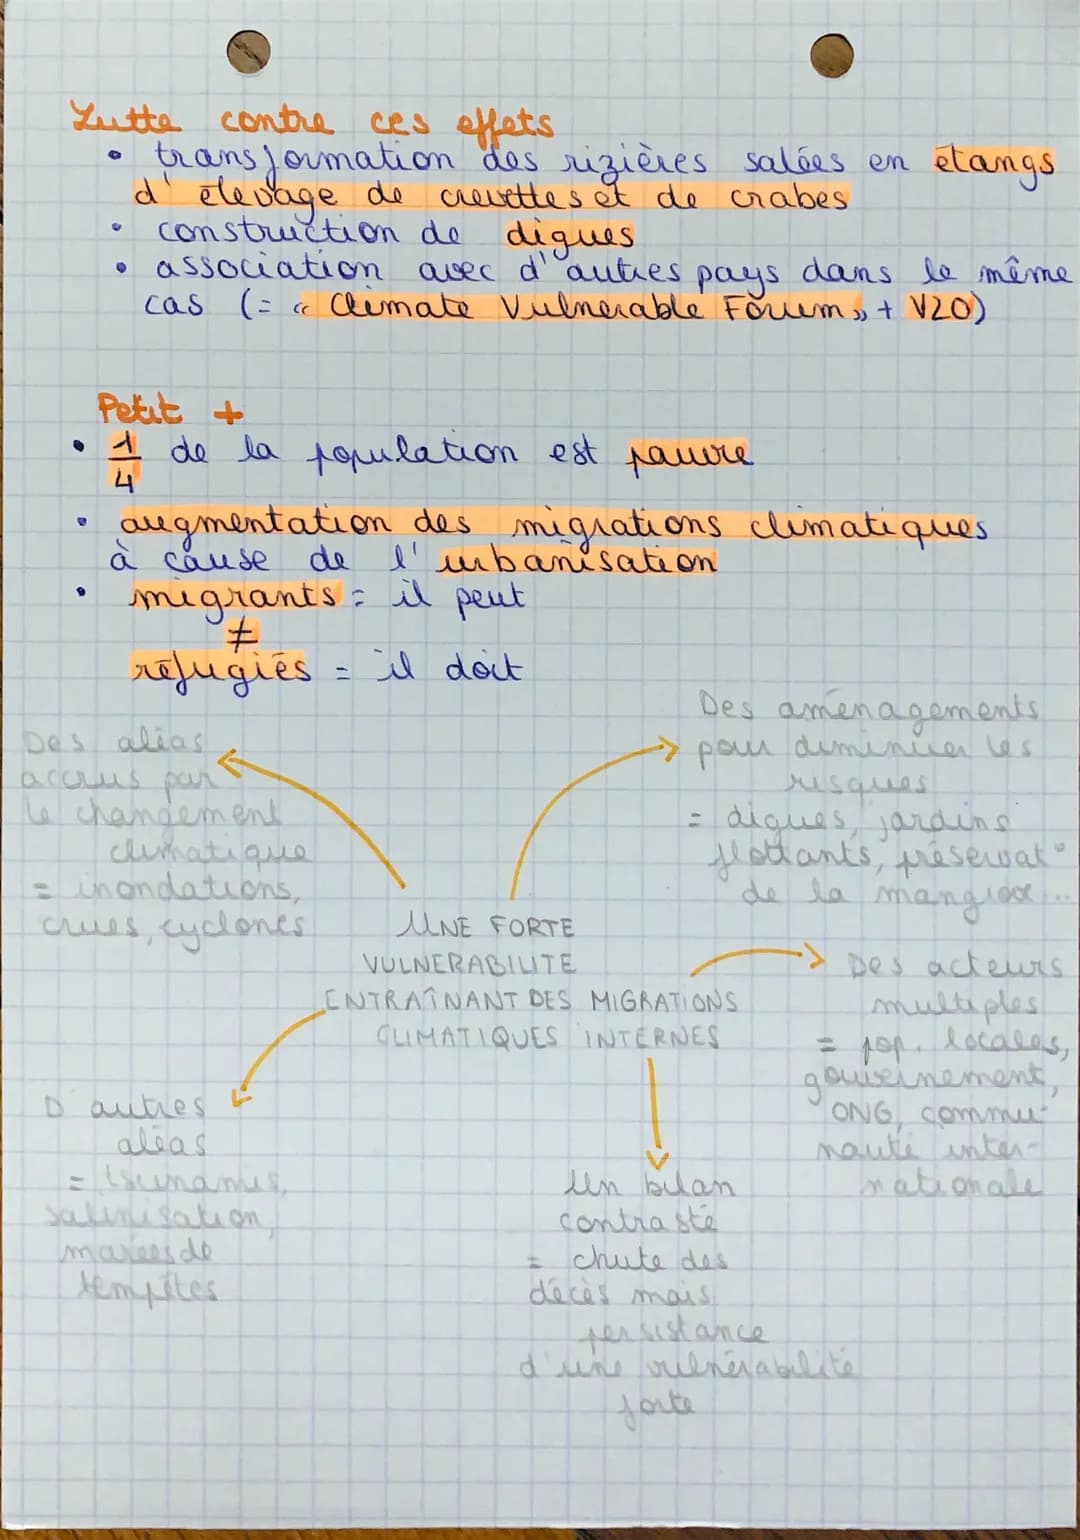 Lutte contre ces effets
• transformation des rizières salées en étangs
d'élevage de crevettes et de crabes
• construction de digues
• association avec d'autres pays dans le même
cas (= « Climate Vulnerable Forum » + V20)
Petit +
• 1/4 de la population est pauvre
• augmentation des migrations climatiques
à cause de l'urbanisation
• migrants = il peut
≠
réfugiés = il doit
Des aléas
accrus par
le changement
climatique
= inondations,
crues, cyclones
Des aménagements
pour diminuer les
risques
= digues, jardins
flottants, préservat°
de la mangrove...
UNE FORTE
VULNERABILITE
ENTRAÎNANT DES MIGRATIONS
CLIMATIQUES INTERNES
Des acteurs
multiples
= pop. locales,
gouvernement,
ONG, commu-
nauté inter-
nationale
D'autres
aléas
= tsunamis,
salinisation,
marées de
tempêtes
Un bilan
contrasté
= chute des
décès mais
persistance
d'une vulnérabilité
forte